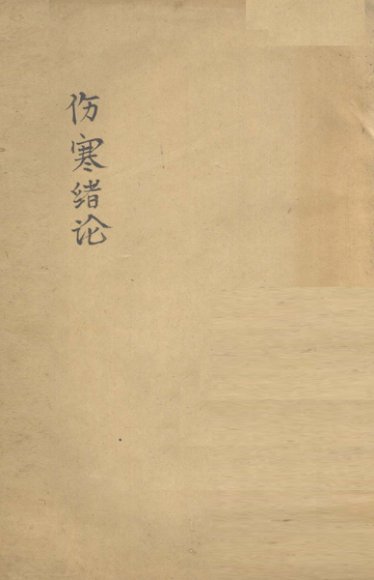 伤寒绪论